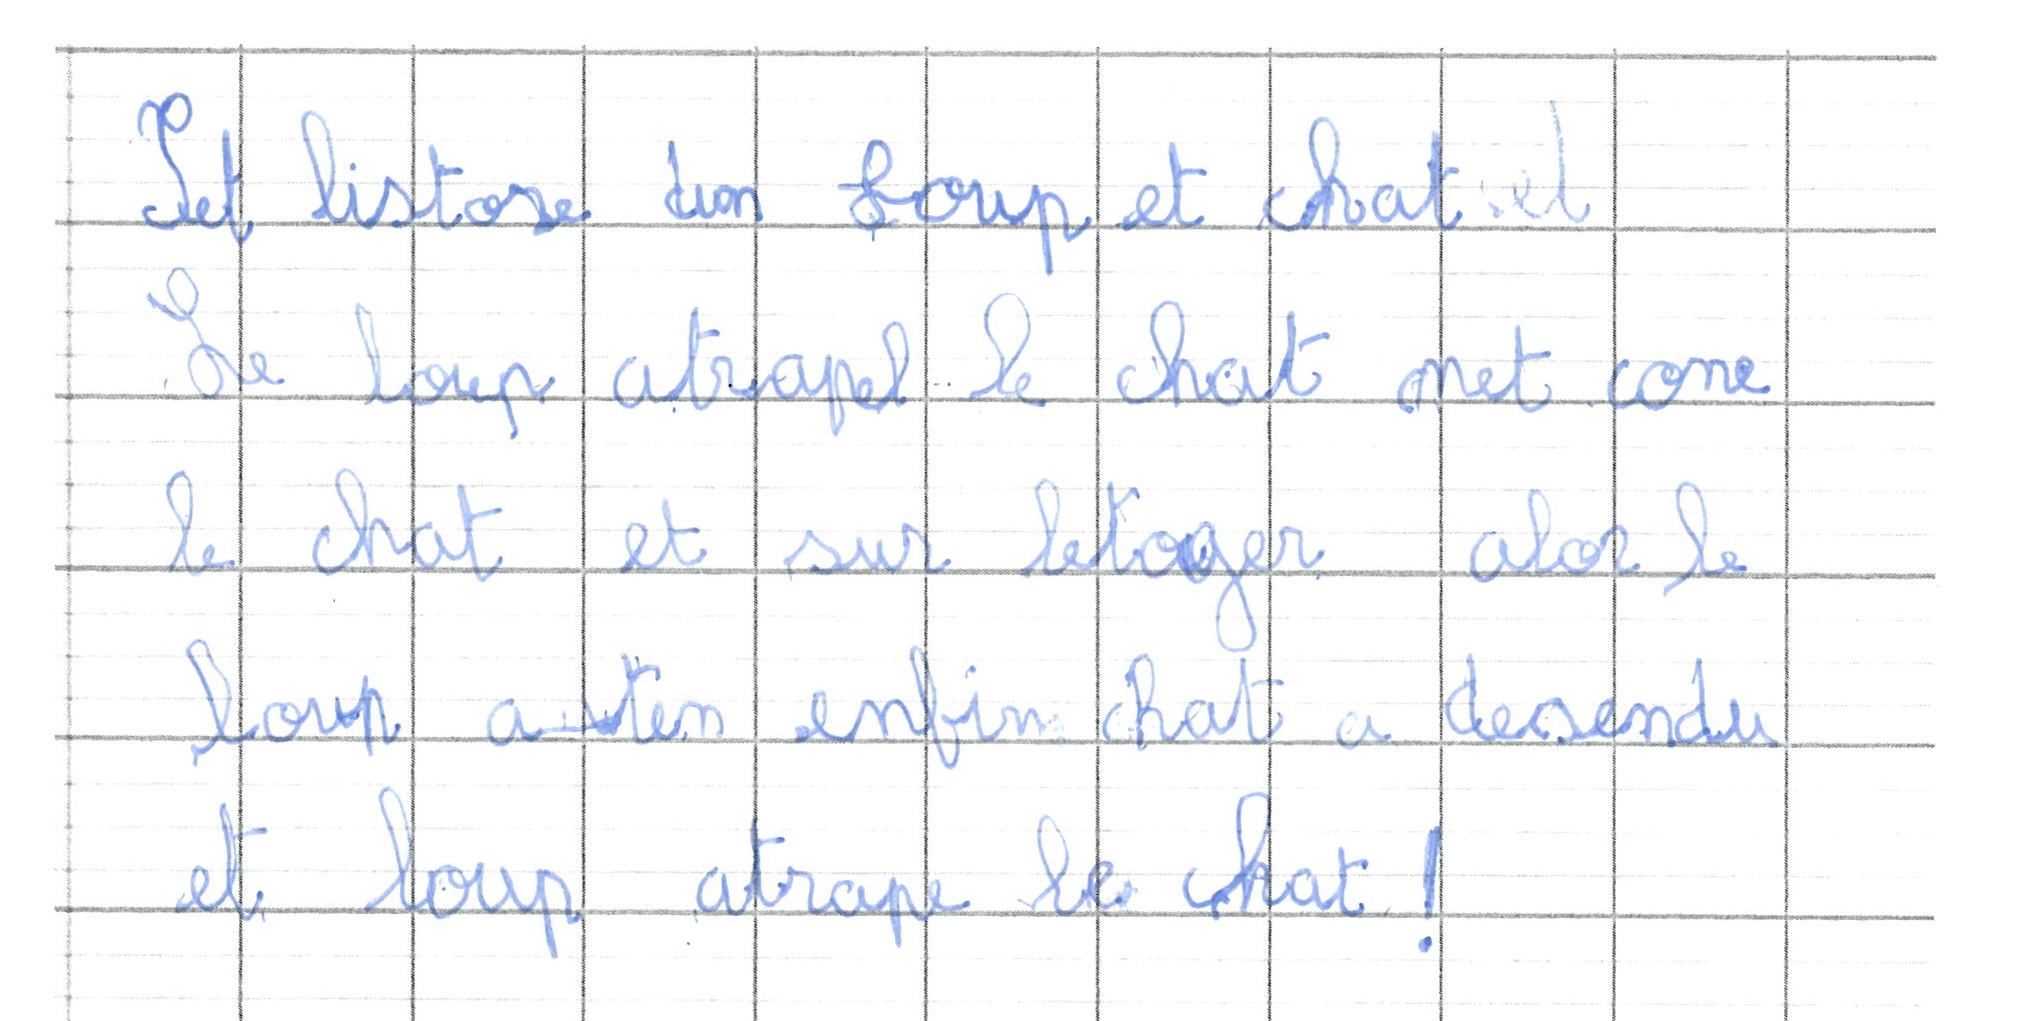 Set listose dun loup et chat et
Le loup atrapel le chat met come
le chat et sur letager alor le
loup a ten enfin chat a desendu
et loup atrape le chat !